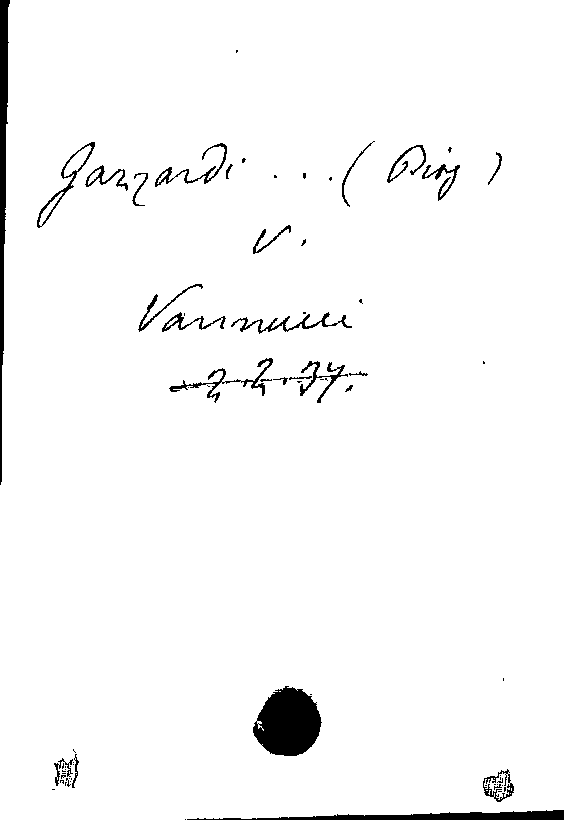 Gazzardi ... (Ding)
v.
Vannucci
2.2.37.